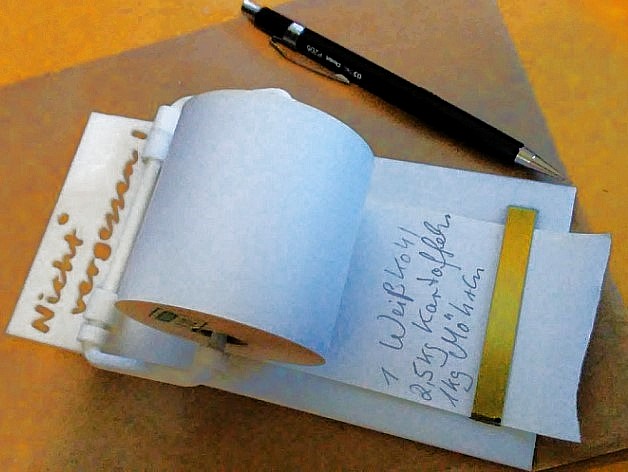 Nicht
vergessen!
1 Weißkohl
2,5kg Kartoffeln
1kg Möhren
Pentel P205